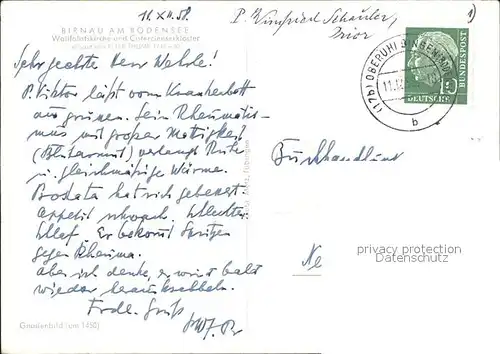 11. XII. 58.
P. Winfried Schauler,
Prior
1)
BIRNAU AM BODENSEE
Wallfahrtskirche und Cistercienserkloster
Sehr geehrter Herr Wehrle!
P. Viktor läßt vom Krankenbett
aus grüssen. Sein Rheumatis-
mus mit großer Mattigkeit
(Blutarmut) verlangt Ruhe
u. gleichmäßige Wärme.
hat sich gebessert.
Appetit schwach. Schlechter
Schlaf. Er bekommt Spritzen
gegen Rheuma.
Aber ich denke, er wird bald
wieder
Frdl. Gruß
Gnadenbild (um 1450)
(17b) OBERUHLDINGEN
11.12.
b
10
DEUTSCHE
BUNDESPOST
Buchhandlung
Ne
privacy protection
Datenschutz